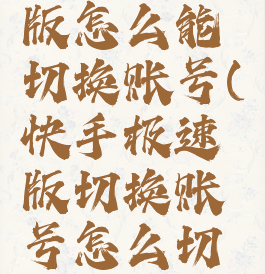 版怎么能
切换账号(
快手极速
版切换账
号怎么切